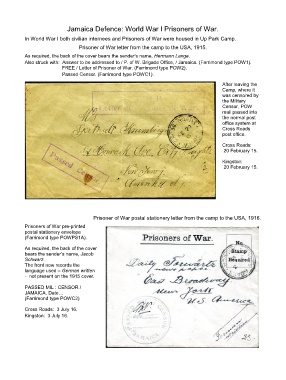 Jamaica Defence: World War I Prisoners of War.
In World War I both civilian internees and Prisoners of War were housed in Up Park Camp.
Prisoner of War letter from the camp to the USA, 1915.
As required, the back of the cover bears the sender's name, Hermann Lange.
Also struck with: Answer to be addressed to / P. of W. Brigade Office, / Jamaica. (Farrimond type POW1).
FREE / Letter of Prisoner of War. (Farrimond type POW2).
Passed Censor. (Farrimond type POWC1)
After leaving the
Camp, where it
was censored by
the Military
Censor, POW
mail passed into
the normal post
office system at
Cross Roads
post office.
Cross Roads:
20 February 15.
Kingston:
20 February 15.
Passed
Prisoner of War postal stationery letter from the camp to the USA, 1916.
Prisoners of War pre-printed
postal stationery envelope
(Farrimond type POWPS1A).
As required, the back of the cover
bears the sender's name, Jacob
Schwarz
The front now records the
language used – German written
- not present on the 1915 cover.
PASSED MIL : CENSOR /
JAMAICA, Date...
(Farrimond type POWC2)
Cross Roads: 3 July 16.
Kingston: 3 July 16.
Prisoners of War.
No
Stamp
Required
Daily Forwärts
newspaper
East Broadway
New York
U.S. America